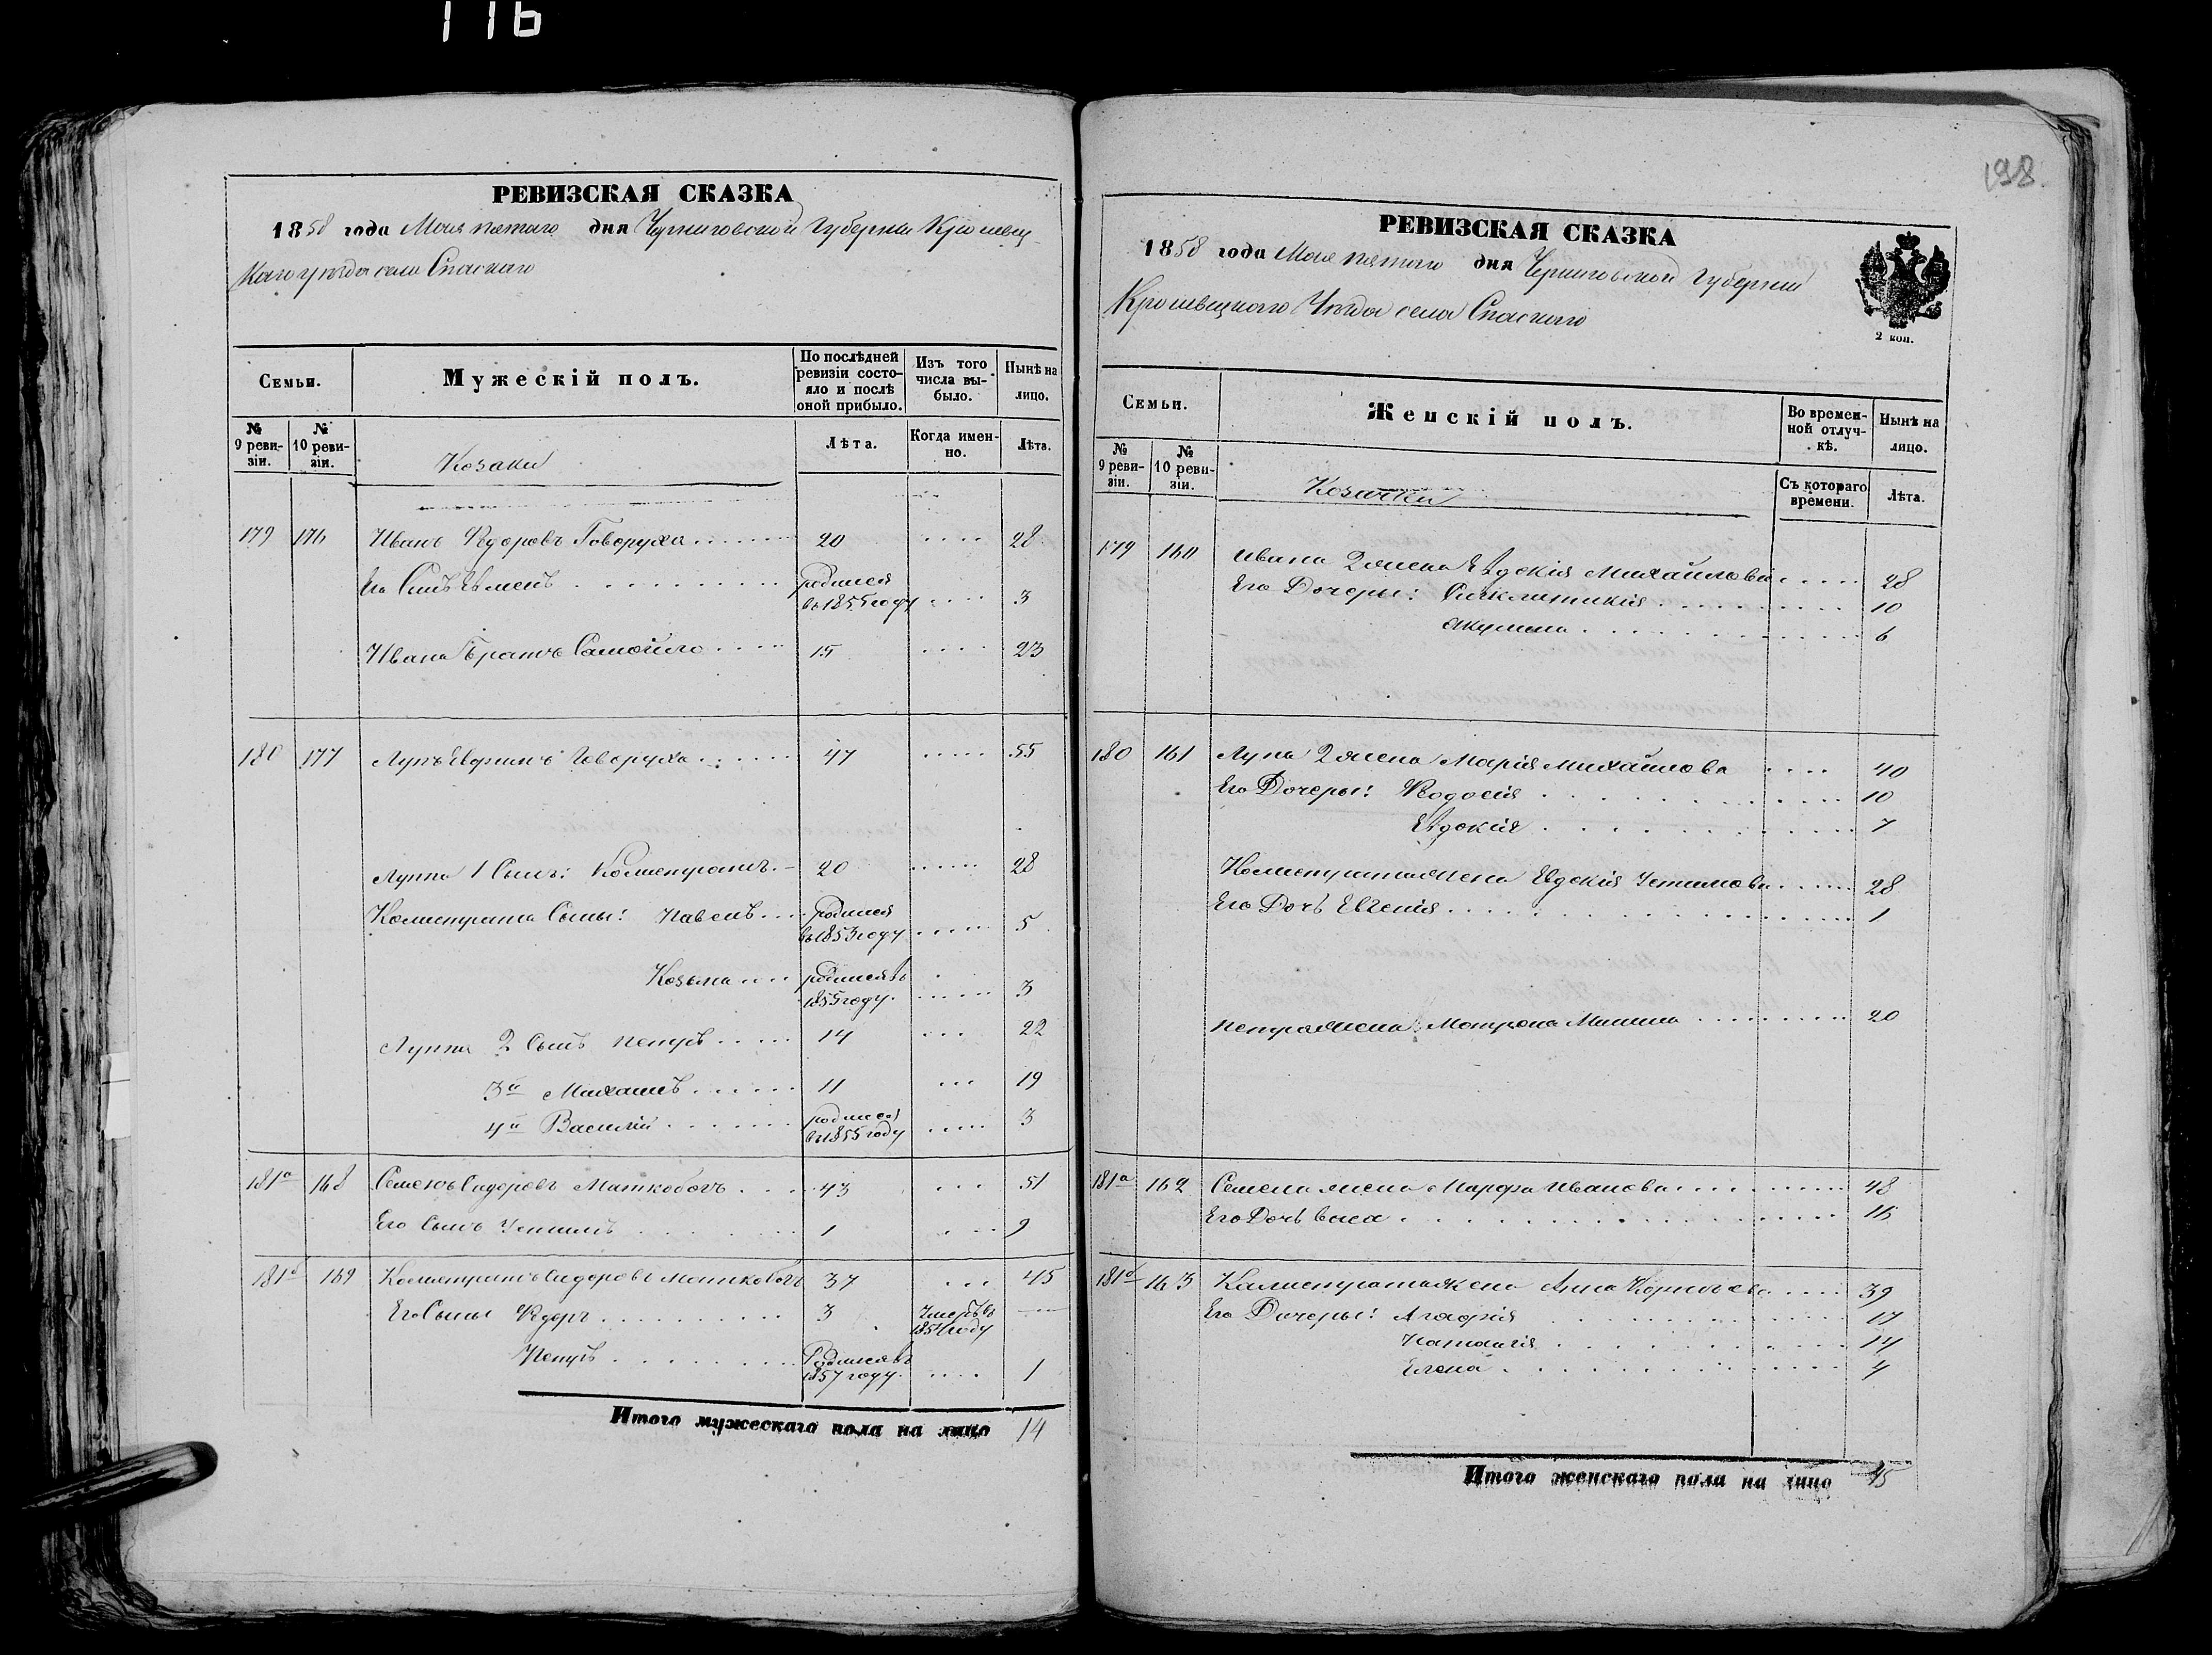 116
РЕВИЗСКАЯ СКАЗКА
1858 года Мая пятаго дня Черниговской Губернии Кролевец-
каго уезда села Спаскаго
Семьи.
Мужескій полъ.
По послѣдней ревизіи состо-яло и послѣ оной прибыло.
Изъ того числа вы-было.
Нынѣ на лицо.
№ 9 реви-зіи.
№ 10 реви-зіи.
Козаки
Лѣта.
Когда имен-но.
Лѣта.
179 176 Иванъ Ѳедоровъ Говоруха 20 28
Его Сынъ Евменъ родился въ 1855 году 3
Ивана братъ Самойло 15 23
180 177 Лупъ Евфимовъ Говоруха 47 55
Луппа 1 Сынъ: Калистратъ 20 28
Калистрата Сыны: Павелъ родился въ 1853 году 5
Козьма родился въ 1855 году 3
Луппа 2 Сынъ Петръ 14 22
3й Михаилъ 11 19
4й Василій родился въ 1855 году 3
181а 168 Семенъ Сидоровъ Маткобожъ 43 51
Его Сынъ Устимъ 1 9
181б 169 Калистратъ Сидоровъ Маткобожъ 37 45
Его Сыны Ѳедоръ 3 Умеръ въ 1854 году
Петръ Родился въ 1857 году 1
Итого мужескаго пола на лицо 14
198.
РЕВИЗСКАЯ СКАЗКА
1858 года Мая пятаго дня Черниговской Губернии
Кролевецкаго Уезда села Спаскаго
2 коп.
Семьи.
Женскій полъ.
Во времен-ной отлуч-кѣ.
Нынѣ на лицо.
№ 9 реви-зіи.
№ 10 реви-зіи.
Козачки
Съ котораго времени.
Лѣта.
179 160 Ивана 2 жена Евдокія Михайлова 28
Его Дочеры: Синклитикія 10
Акулина 6
180 161 Лупа 2 жена Марія Михайлова 40
Его Дочеры: Ѳедосія 10
Евдокія 7
Калистрата жена Евдокія Устимова 28
Его Дочь Евгенія 1
Петра жена Матрона Минина 20
181а 162 Семена жена Марфа Иванова 48
Его Дочь Васса 16
181б 163 Калистрата жена Анна Корнѣева 39
Его Дочеры: Агафія 17
Наталія 14
Елена 4
Итого женскаго пола на лицо 15